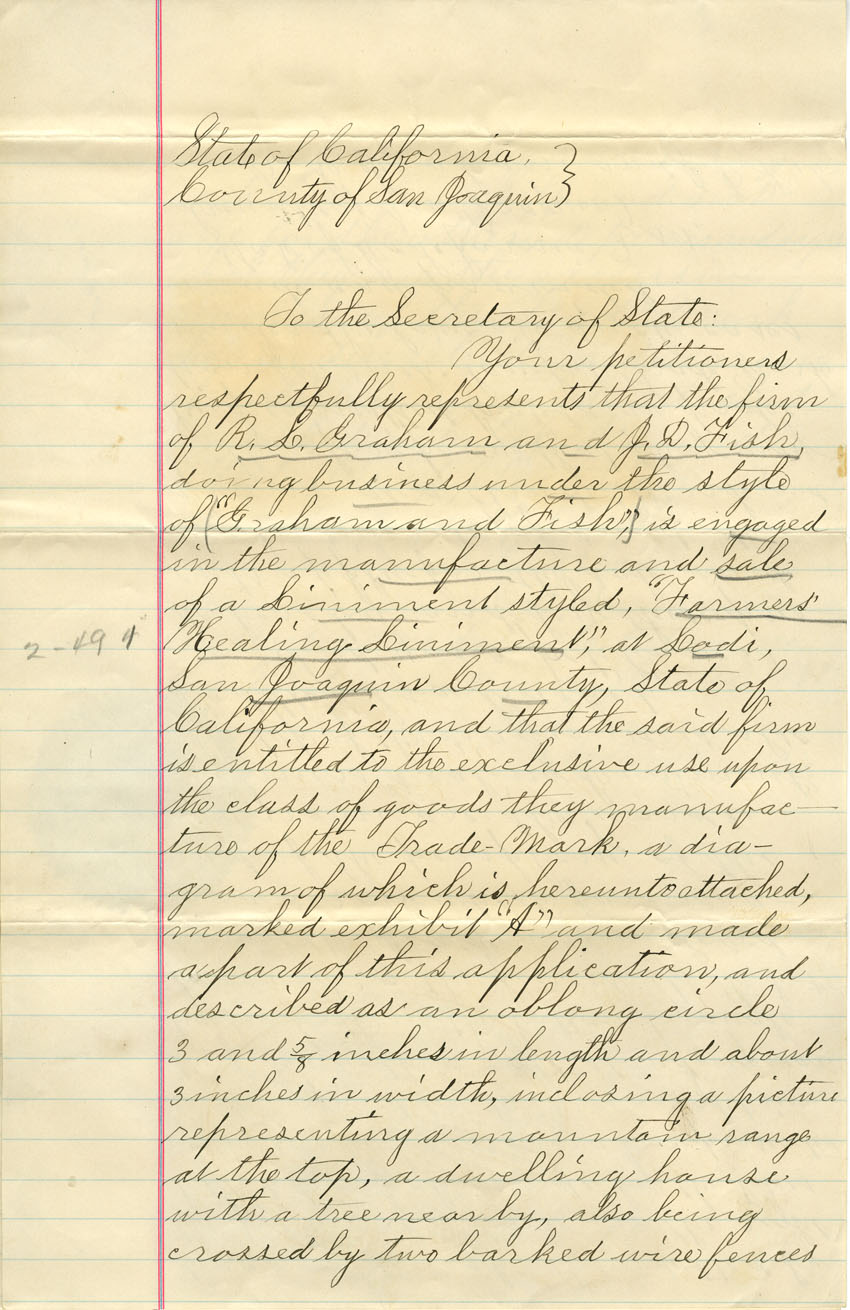 State of California, }
County of San Joaquin }
To the Secretary of State:
Your petitioners
respectfully represents that the firm
of R. L. Graham and J. D. Fish,
doing business under the style
of ("Graham and Fish",) is engaged
in the manufacture and sale
of a Liniment styled, "Farmers'
2-49 1
Healing Liniment," at Lodi,
San Joaquin County, State of
California, and that the said firm
is entitled to the exclusive use upon
the class of goods they manufac-
ture of the Trade-Mark, a dia-
gram of which is hereunto attached,
marked exhibit "A" and made
a part of this application, and
described as an oblong circle
3 and 5/8 inches in length and about
3 inches in width, inclosing a picture
representing a mountain range
at the top, a dwelling house
with a tree near by, also being
crossed by two barked wire fences